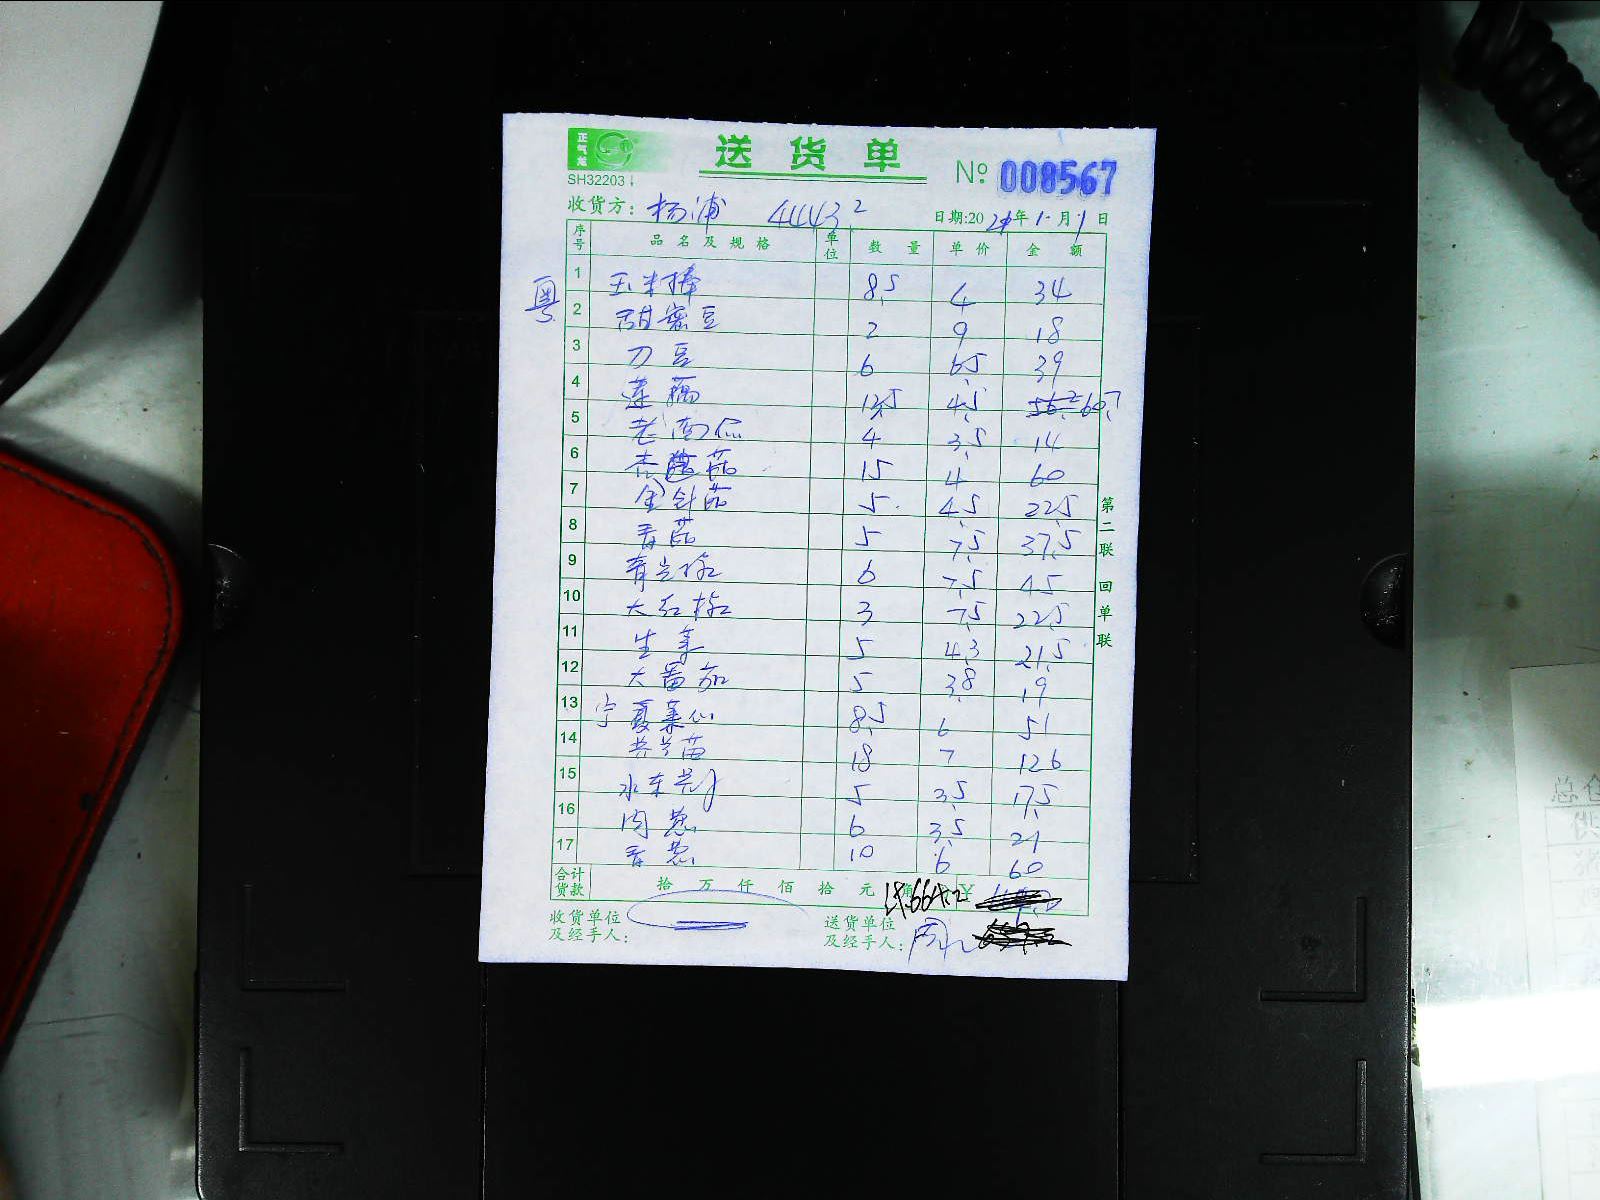 正气龙
送货单
№ 008567
SH32203
收货方: 杨浦 44432
日期:2021年1月1日
序号 品名及规格 单位 数量 单价 金额
粤
1 玉米棒 8.5 4 34
2 甜蜜豆 2 9 18
3 刀豆 6 6.5 39
4 莲藕 13.5 4.5 56.2 60.7
5 老南瓜 4 3.5 14
6 杏鲍菇 15 4 60
7 金针菇 5 4.5 22.5
8 香菇 5 7.5 37.5
9 青尖椒 6 7.5 45
10 大红椒 3 7.5 22.5
11 生菜 5 4.3 21.5
12 大番茄 5 3.8 19
13 宁夏菜心 8.5 6 51
14 18 7 126
15 水东芥 5 3.5 17.5
16 肉葱 6 3.5 21
17 香葱 10 6 60
合计货款 拾 万 仟 佰 拾 元 角 664.2
收货单位及经手人:
送货单位及经手人: 周
第二联 回单联
总仓
供